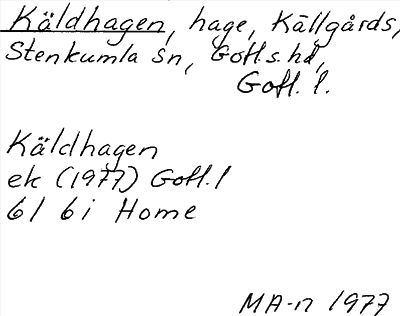 Käldhagen, hage, Källgårds,
Stenkumla sn, Gotl.s.hd,
Gotl. l.
Käldhagen
ek (1977) Gotl. l
6I 6i Home
MA-n 1977